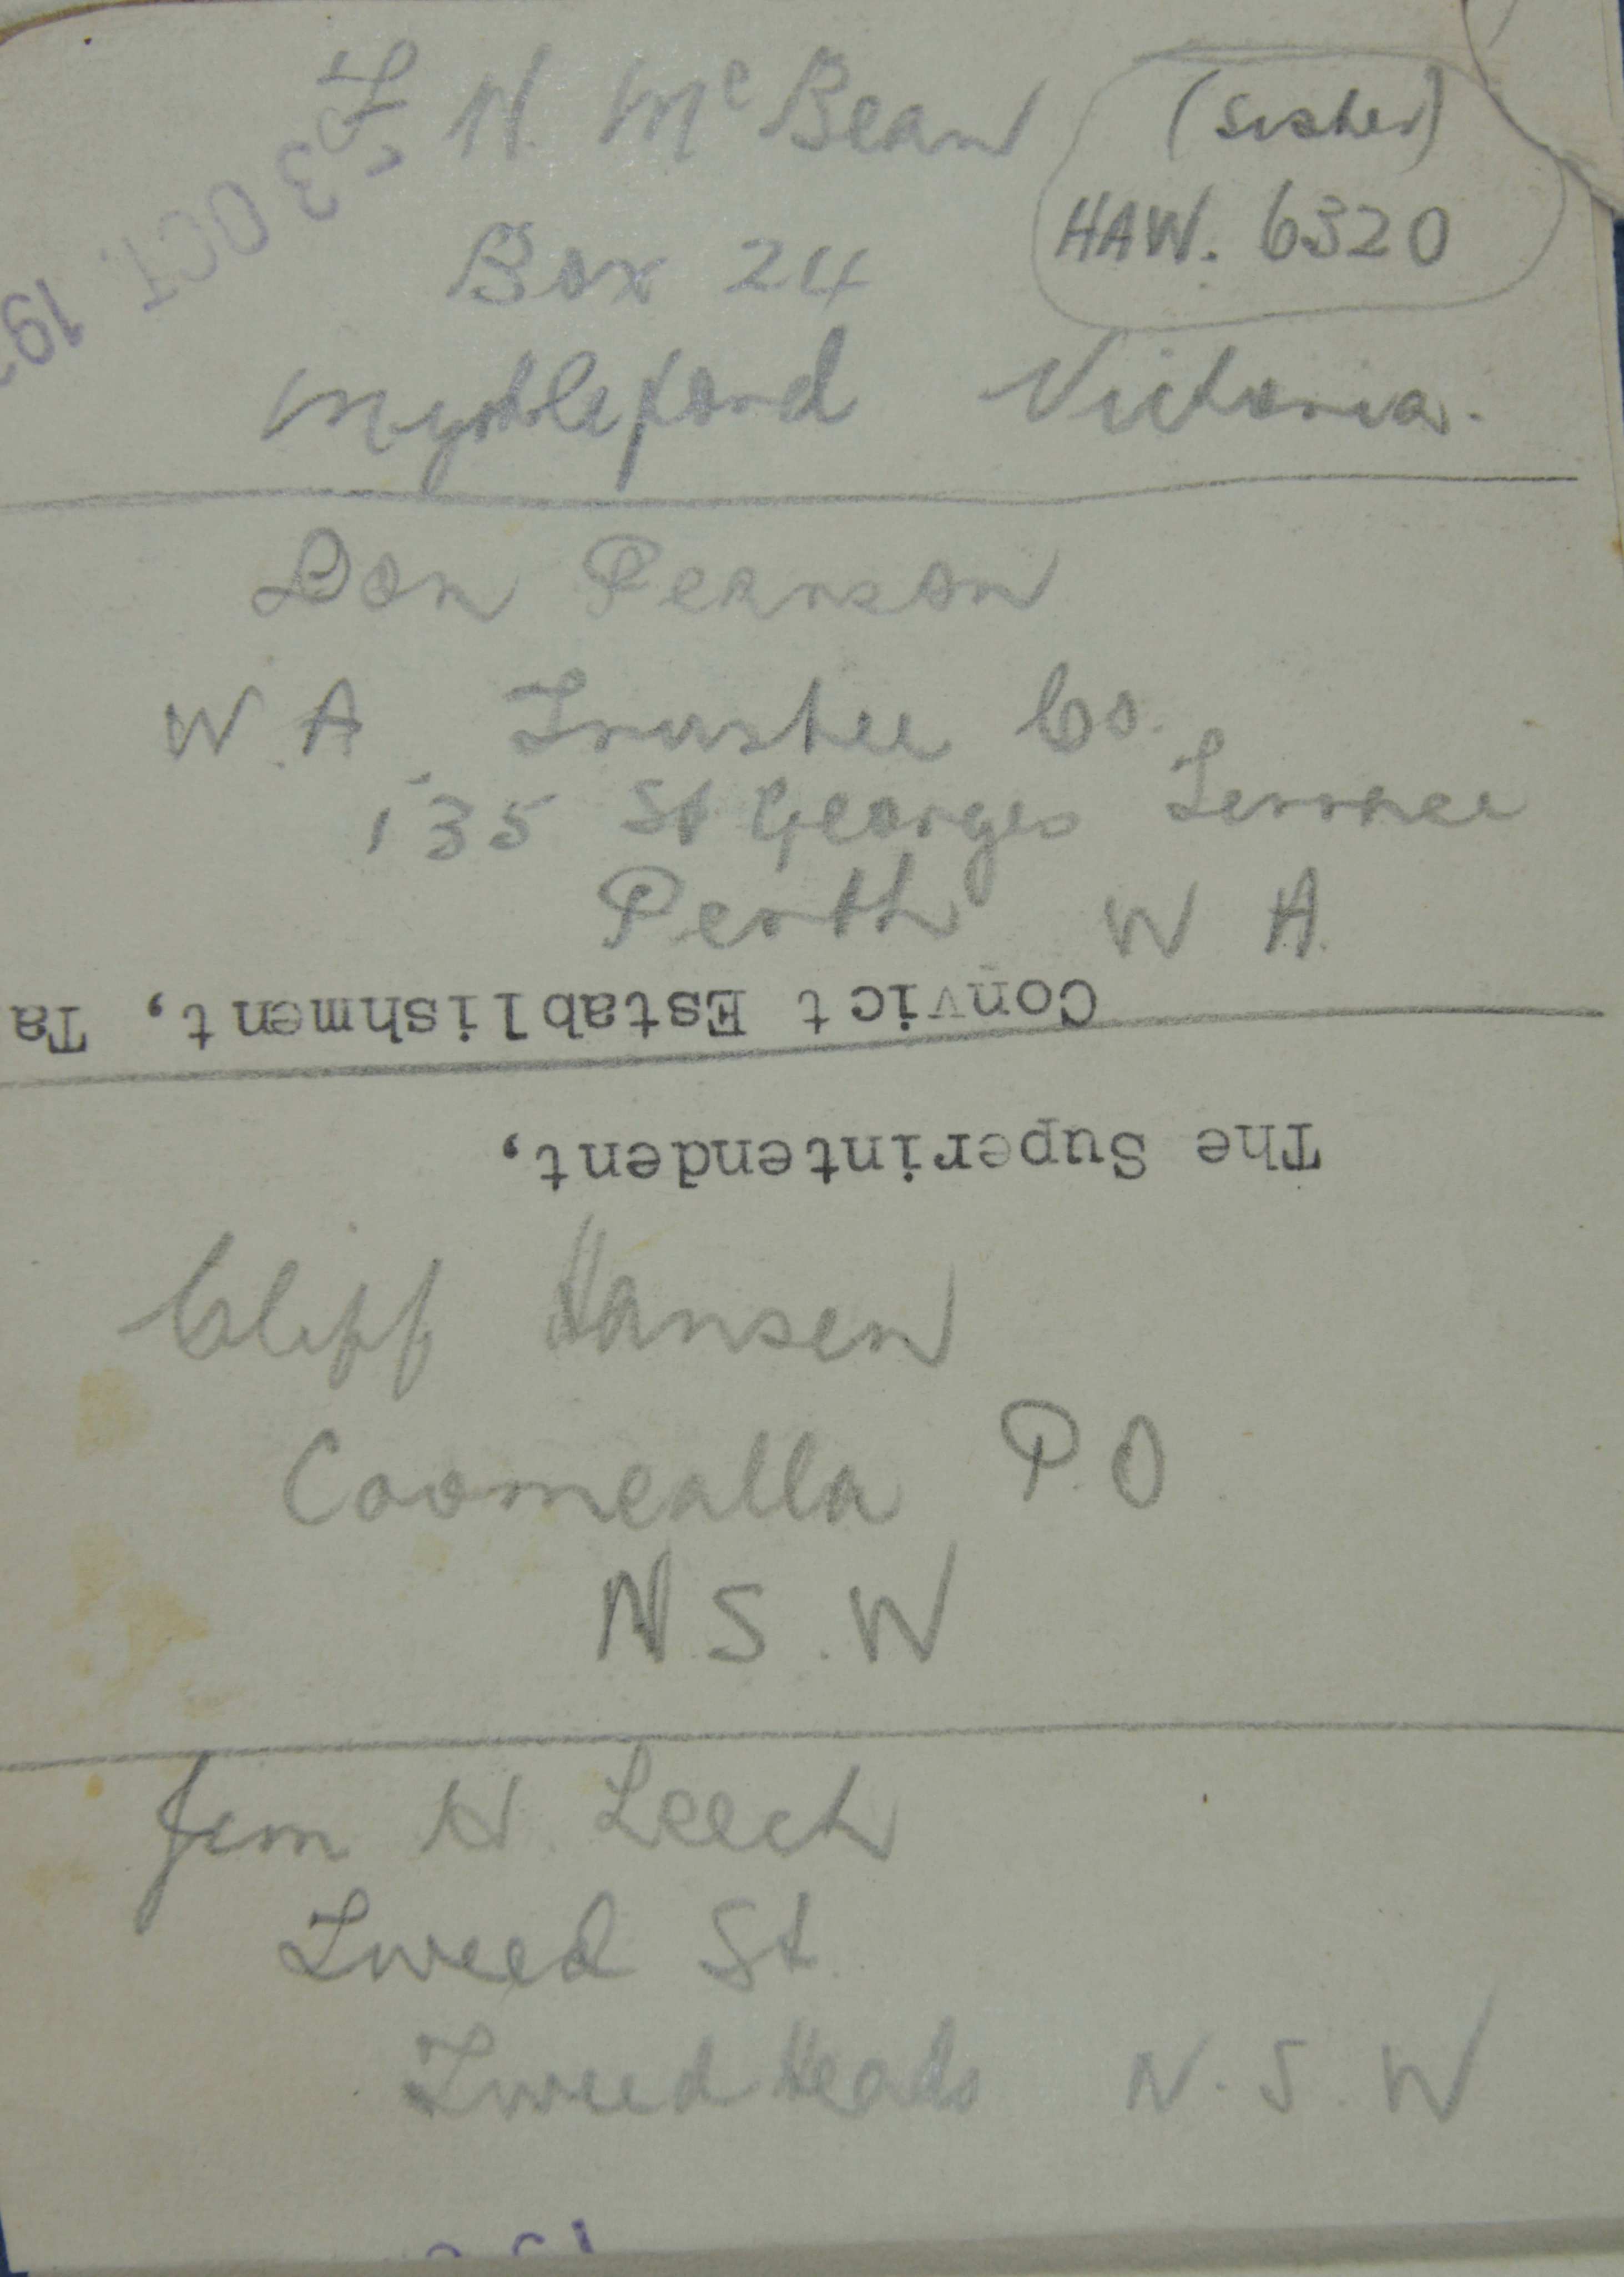 N. McBean (Sister)
HAW. 6320
Box 24
Myrtleford Victoria.
-3 OCT. 19
Don Pearson
W.A. Trustee Co.
135 St Georges Terrace
Perth W A.
Convict Establishment, Ta
The Superintendent,
Cliff Hansen
Coomealla P.O.
N.S.W
Jim H. Leech
Tweed St.
Tweed Heads N.S.W